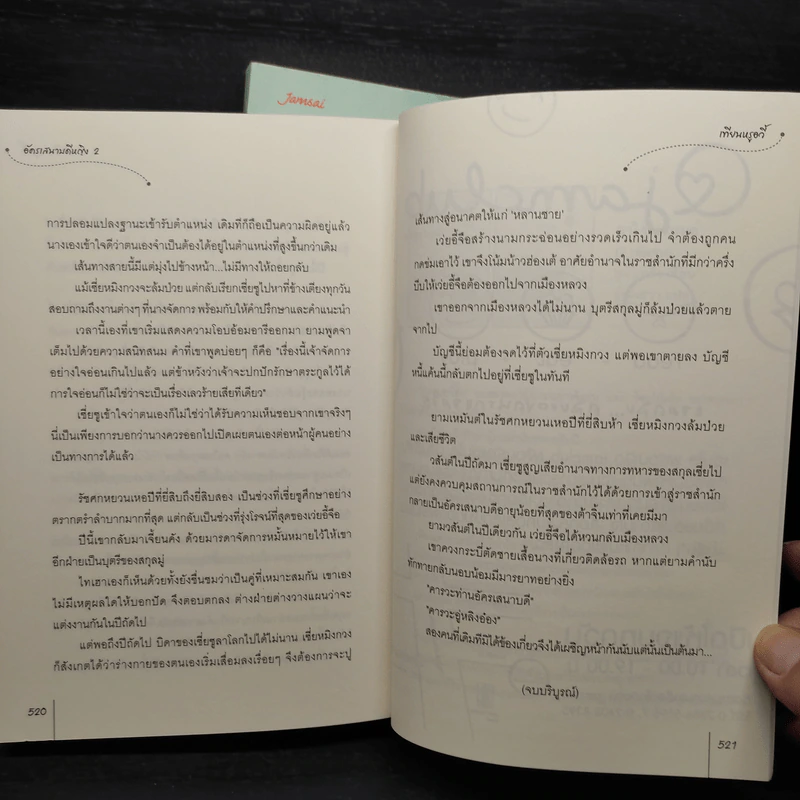 Jamsai
อัคราเสนาบดีหญิง 2
การปลอมแปลงฐานะเข้ารับตำแหน่ง เดิมทีก็ถือเป็นความผิดอยู่แล้ว
นางเองเข้าใจดีว่าตนเองจำเป็นต้องได้อยู่ในตำแหน่งที่สูงขึ้นกว่าเดิม
เส้นทางสายนี้มีแต่มุ่งไปข้างหน้า...ไม่มีทางให้ถอยกลับ
แม้เซี่ยหมิงกวงจะล้มป่วย แต่กลับเรียกเซี่ยซูไปหาที่ข้างเตียงทุกวัน
สอบถามถึงงานต่างๆ ที่นางจัดการ พร้อมกับให้คำปรึกษาและคำแนะนำ
เวลานี้เองที่เขาเริ่มแสดงความโอบอ้อมอารีออกมา ยามพูดจา
เต็มไปด้วยความสนิทสนม คำที่เขาพูดบ่อยๆ ก็คือ "เรื่องนี้เจ้าจัดการ
อย่างใจอ่อนเกินไปแล้ว แต่ข้าหวังว่าเจ้าจะปกปักรักษาตระกูลไว้ได้
การใจอ่อนก็ไม่ใช่ว่าจะเป็นเรื่องเลวร้ายเสียทีเดียว"
เซี่ยซูเข้าใจว่าตนเองก็ไม่ใช่ว่าได้รับความเห็นชอบจากเขาจริงๆ
นี่เป็นเพียงการบอกว่านางควรออกไปเปิดเผยตนเองต่อหน้าผู้คนอย่าง
เป็นทางการได้แล้ว
รัชศกหยวนเหอปีที่ยี่สิบถึงยี่สิบสอง เป็นช่วงที่เซี่ยซูศึกษาอย่าง
ตรากตรำลำบากมากที่สุด แต่กลับเป็นช่วงที่รุ่งโรจน์ที่สุดของเว่ยอี้จือ
ปีนี้เขากลับมาเจี้ยนคัง ด้วยมารดาจัดการหมั้นหมายไว้ให้เขา
อีกฝ่ายเป็นบุตรีของสกุลมู่
ไทเฮาเองก็เห็นด้วยทั้งยังชื่นชมว่าเป็นคู่ที่เหมาะสมกัน เขาเอง
ไม่มีเหตุผลใดให้บอกปัด จึงตอบตกลง ต่างฝ่ายต่างวางแผนว่าจะ
แต่งงานกันในปีถัดไป
แต่พอถึงปีถัดไป บิดาของเซี่ยซูลาโลกไปได้ไม่นาน เซี่ยหมิงกวง
ก็สังเกตได้ว่าร่างกายของตนเองเริ่มเสื่อมลงเรื่อยๆ จึงต้องการจะปู
520
เทียนหรูอวี้
เส้นทางสู่อนาคตให้แก่ 'หลานชาย'
เว่ยอี้จือสร้างนามกระฉ่อนอย่างรวดเร็วเกินไป จำต้องถูกคน
กดข่มเอาไว้ เขาจึงโน้มน้าวฮ่องเต้ อาศัยอำนาจในราชสำนักที่มีกว่าครึ่ง
บีบให้เว่ยอี้จือต้องออกไปจากเมืองหลวง
เขาออกจากเมืองหลวงได้ไม่นาน บุตรีสกุลมู่ก็ล้มป่วยแล้วตาย
จากไป
บัญชีนี้ย่อมต้องจดไว้ที่ตัวเซี่ยหมิงกวง แต่พอเขาตายลง บัญชี
หนี้แค้นนี้กลับตกไปอยู่ที่เซี่ยซูในทันที
ยามเหมันต์ในรัชศกหยวนเหอปีที่ยี่สิบห้า เซี่ยหมิงกวงล้มป่วย
และเสียชีวิต
วสันต์ในปีถัดมา เซี่ยซูสูญเสียอำนาจทางการทหารของสกุลเซี่ยไป
แต่ยังคงควบคุมสถานการณ์ในราชสำนักไว้ได้ด้วยการเข้าสู่ราชสำนัก
กลายเป็นอัครเสนาบดีอายุน้อยที่สุดของต้าจิ้นเท่าที่เคยมีมา
ยามวสันต์ในปีเดียวกัน เว่ยอี้จือได้หวนกลับเมืองหลวง
เขาควงกระบี่ตัดชายเสื้อนางที่เกี่ยวติดล้อรถ หากแต่ยามคำนับ
ทักทายกลับนอบน้อมมีมารยาทอย่างยิ่ง
"คารวะท่านอัครเสนาบดี"
"คารวะอู่หลิงอ๋อง"
สองคนที่เดิมทีมิได้ข้องเกี่ยวจึงได้เผชิญหน้ากันนับแต่นั้นเป็นต้นมา...
(จบบริบูรณ์)
521